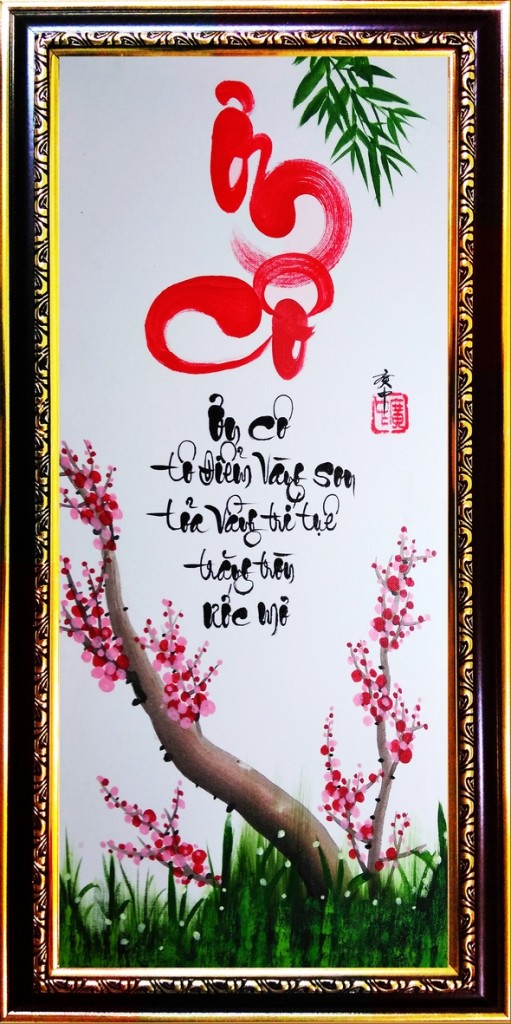 Ơn
Cô
Ơn Cô
tô điểm vàng son
tỏa vầng trí tuệ
trăng tròn
ước mơ